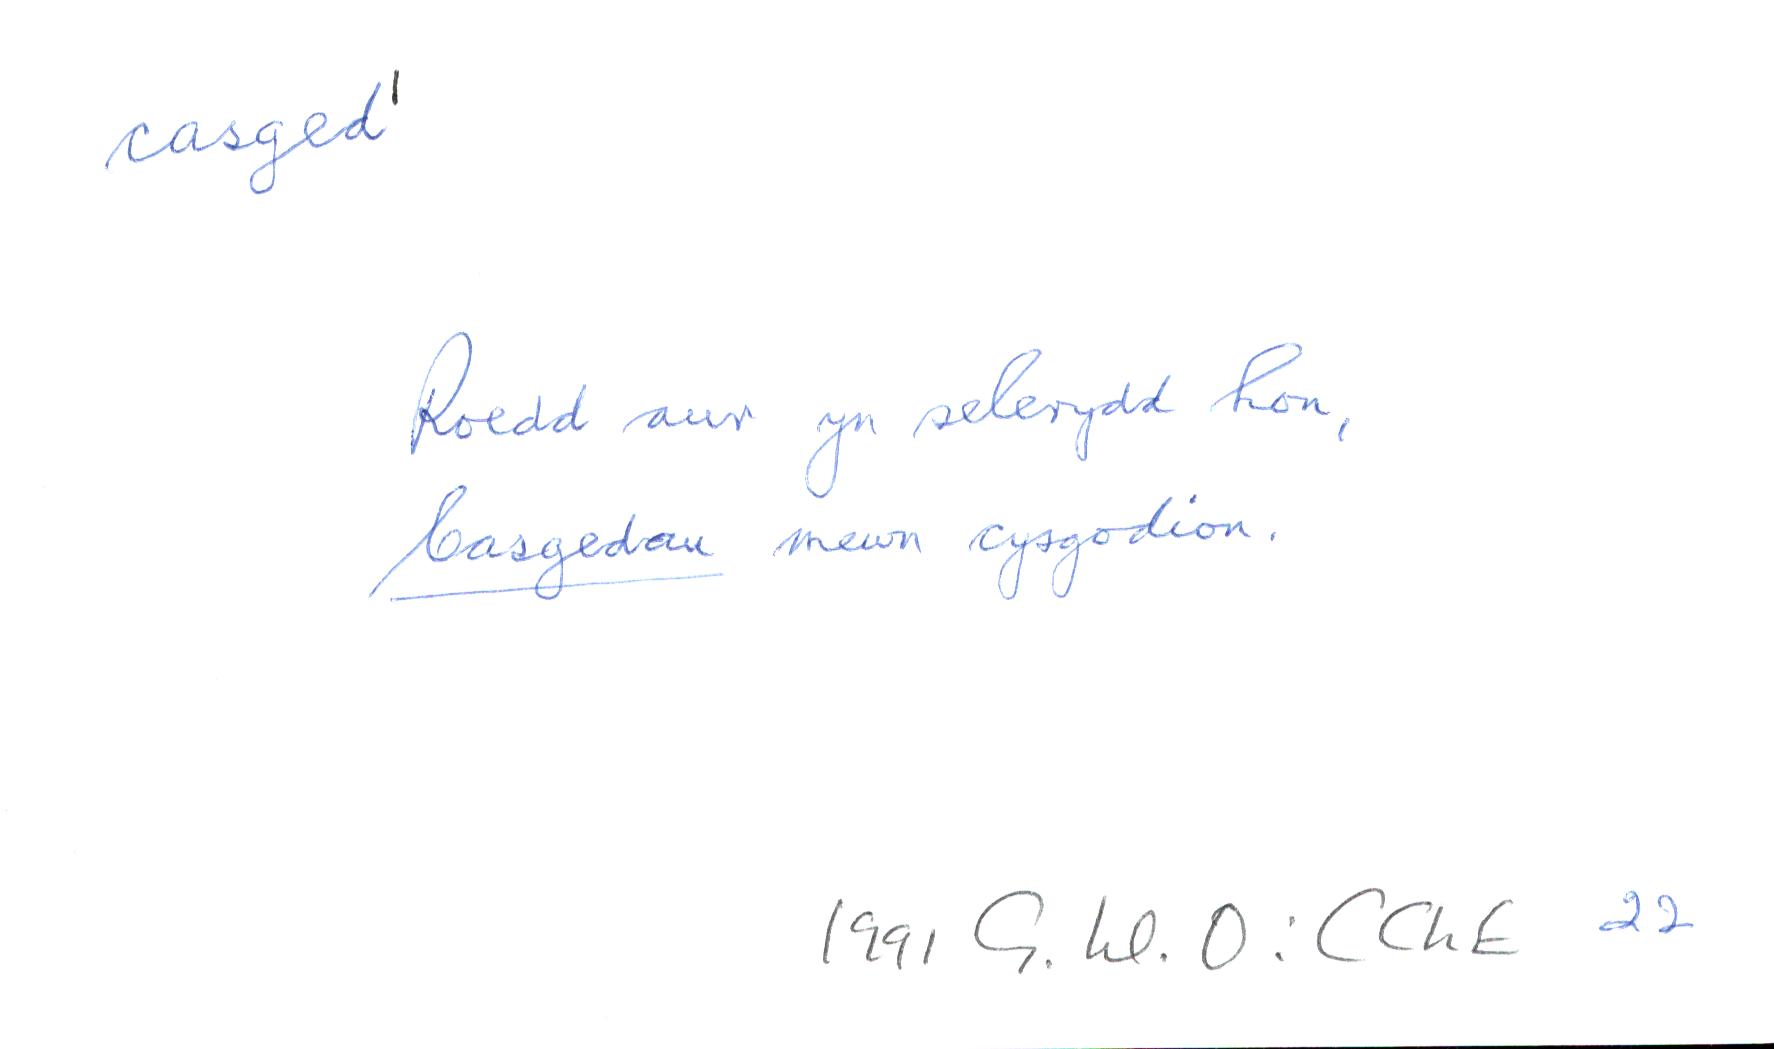 casged¹
Roedd aur yn selerydd hon,
Casgedau mewn cysgodion.
1991 G. W. O: CChE 22